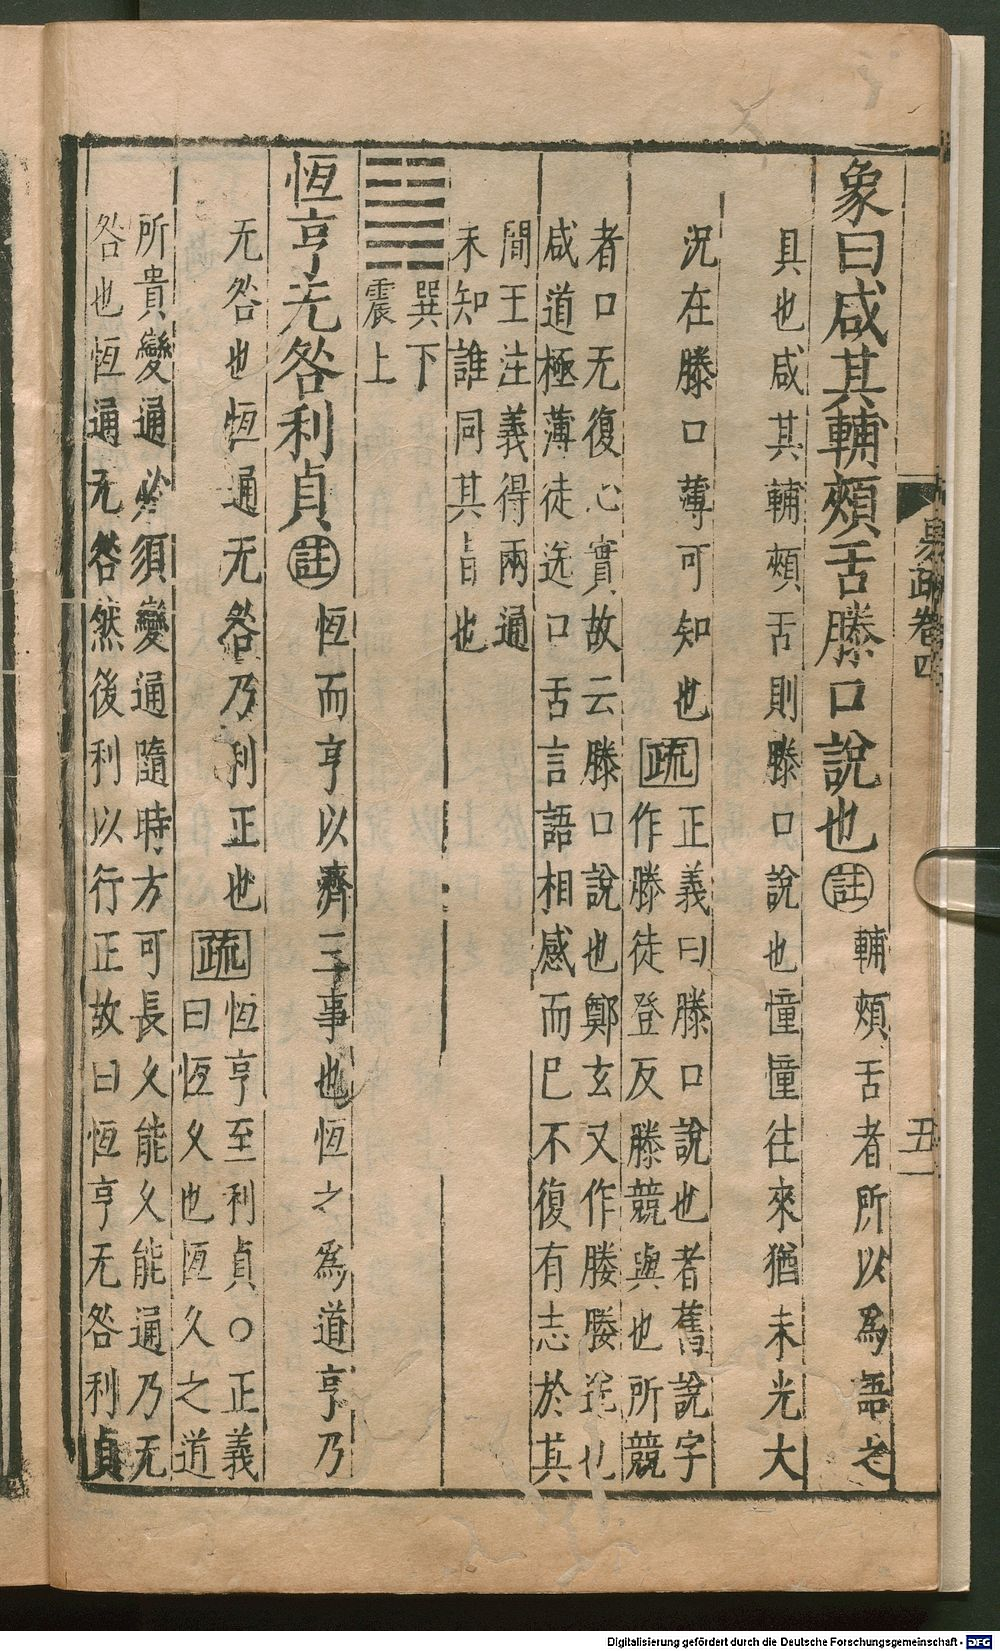 象曰咸其輔頰舌滕口說也註輔頰舌者所以為語之
具也咸其輔頰舌則滕口說也憧憧往來猶未光大
況在滕口薄可知也疏正義曰滕口說也者舊說字
作滕徒登反滕競與也所競
者口无復心實故云滕口說也鄭玄又作媵媵送也
咸道極薄徒送口舌言語相感而已不復有志於其
間王注義得兩通
未知誰同其旨也
巽下
震上
恆亨无咎利貞註恆而亨以濟三事也恆之為道亨乃
无咎也恆通无咎乃利正也疏恆亨至利貞○正義
曰恆久也恆久之道
所貴變通必須變通隨時方可長久能久能通乃无
咎也恆通无咎然後利以行正故曰恆亨无咎利貞
易疏卷四
五一
Digitalisierung gefördert durch die Deutsche Forschungsgemeinschaft - DFG